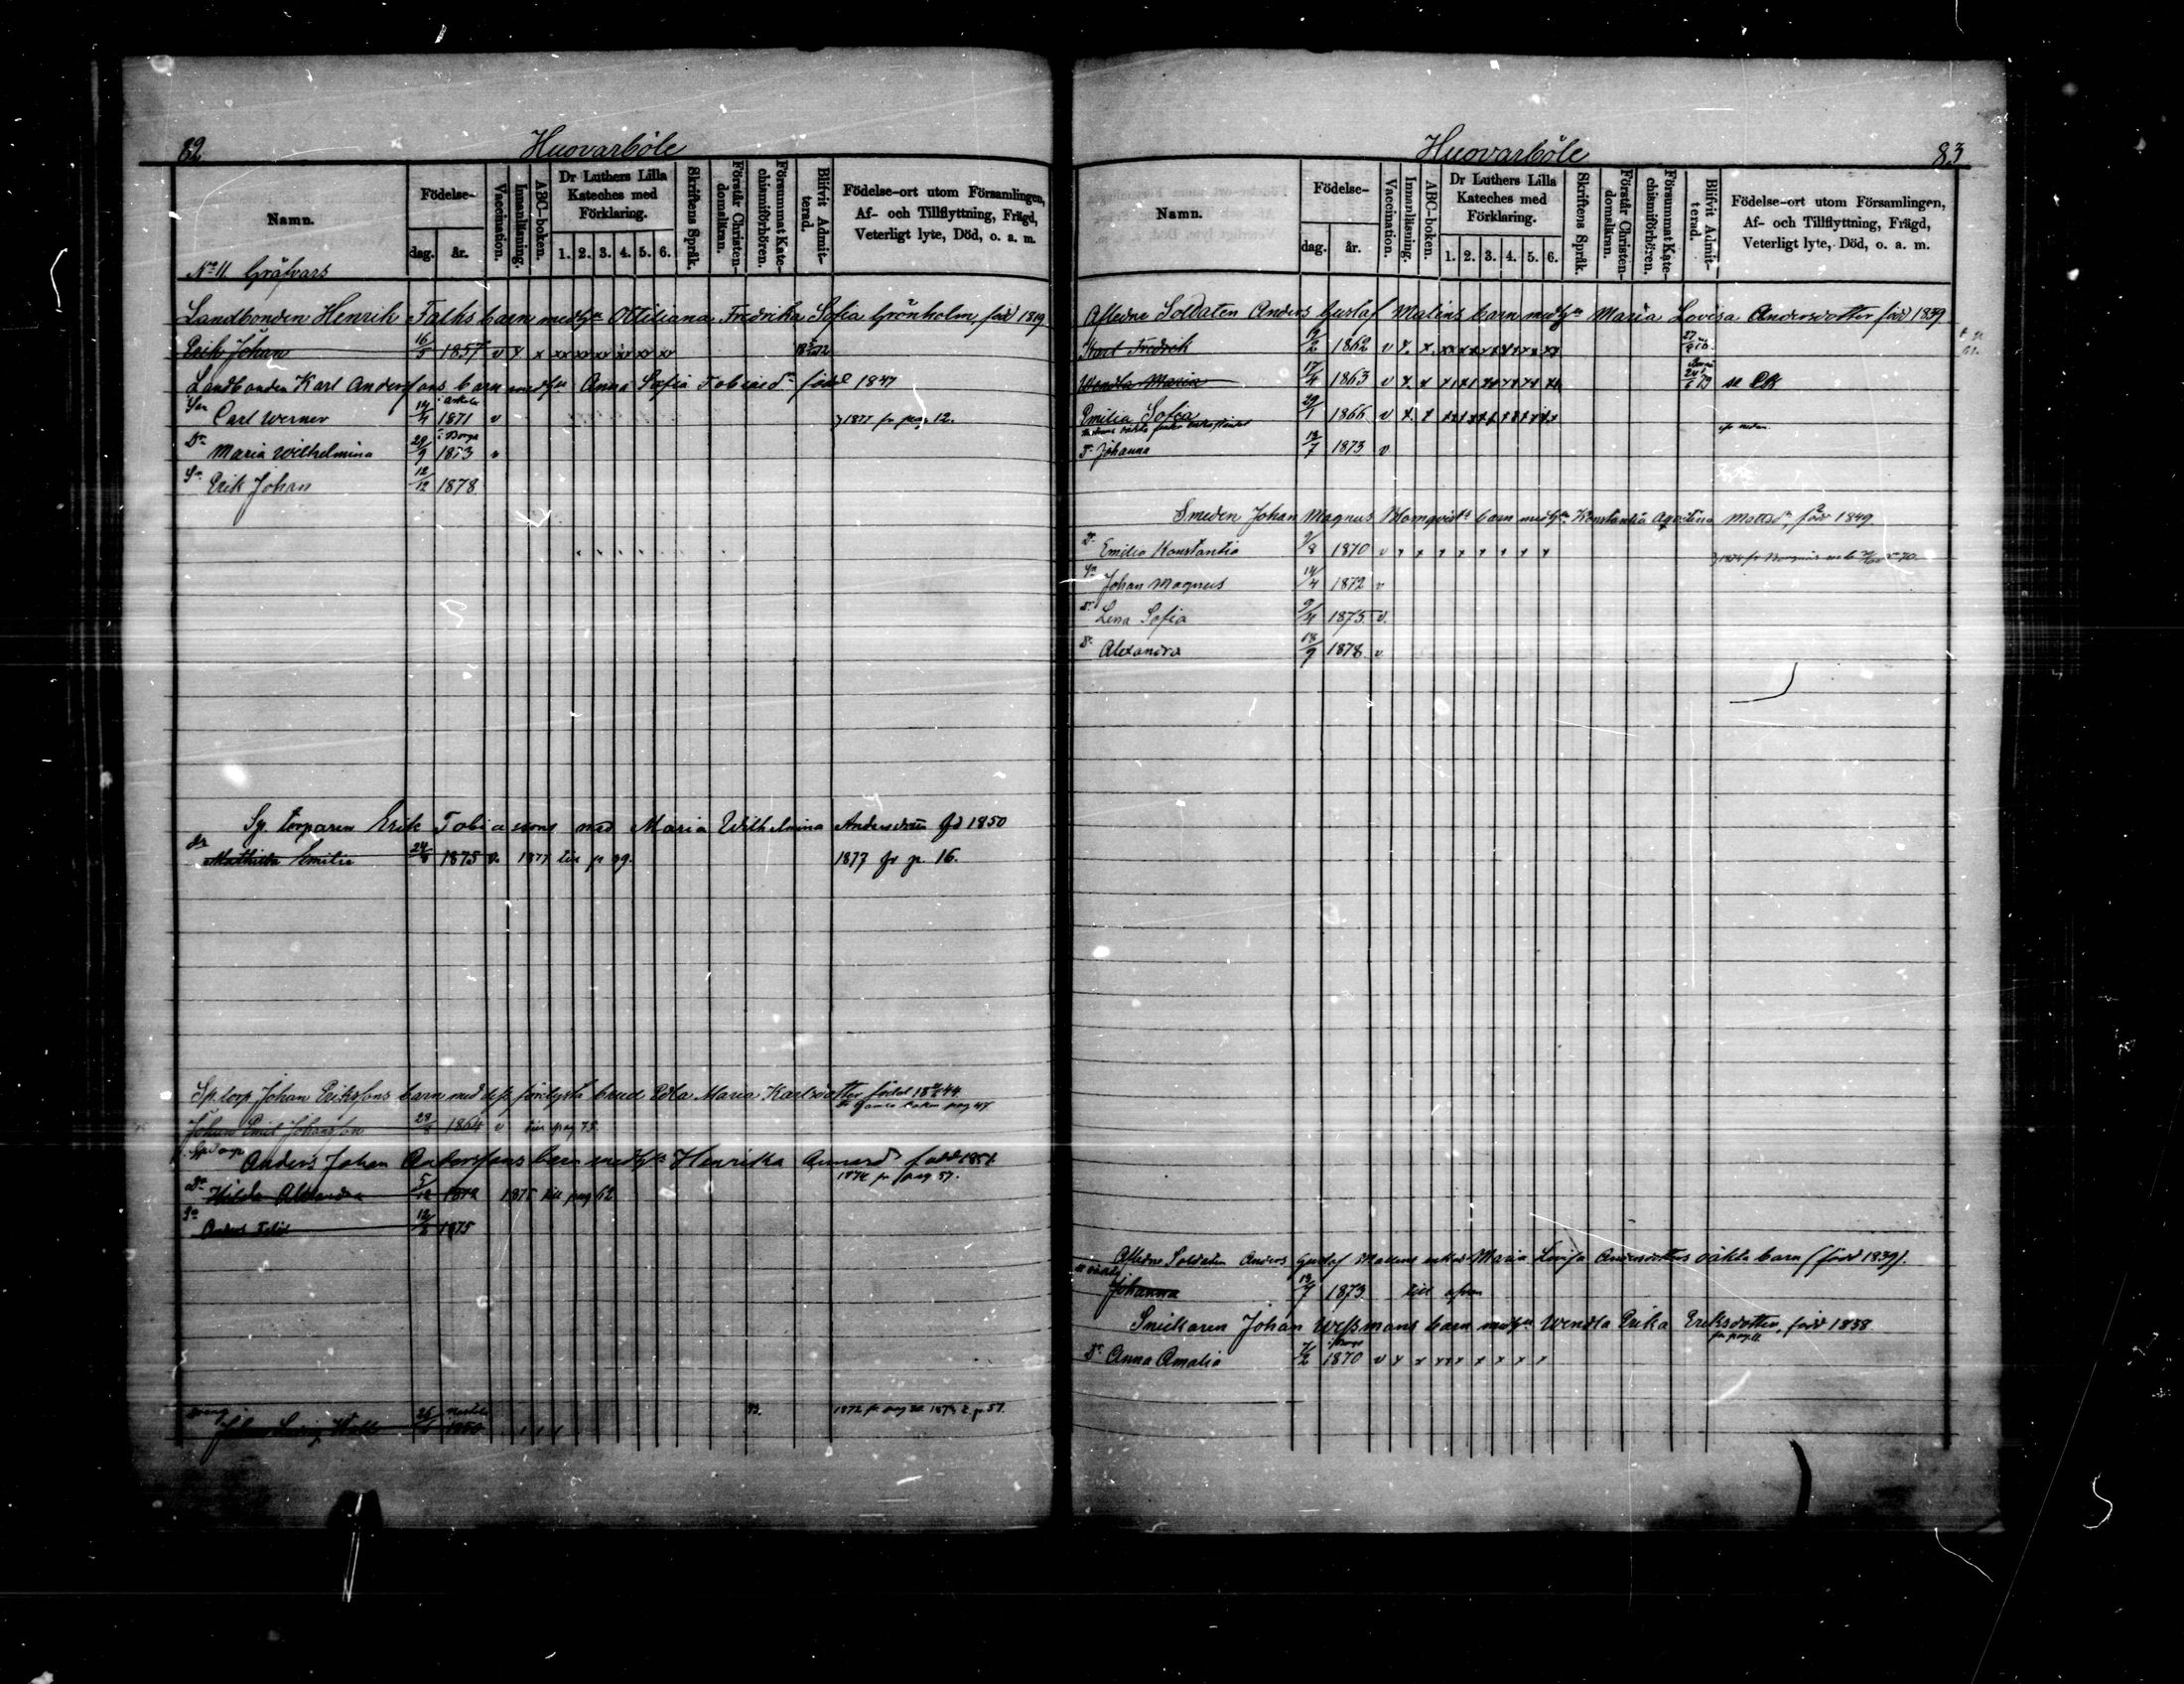 82 Huovarböle
Namn.
Födelse-
dag. år.
Vaccination.
Innanläsning.
ABC-boken.
Dr Luthers Lilla Kateches med Förklaring.
1. 2. 3. 4. 5. 6.
Skriftens Språk.
Förstår Christen-domsläran.
Försummat Kate-chismiförhören.
Blifvit Admit-terad.
Födelse-ort utom Församlingen, Af- och Tillflyttning, Frägd, Veterligt lyte, Död, o. a. m.
No 11 Gräfvars
Landbonden Henrik Falks barn med Ottiliana Fredrika Sofia Grönholm, född 1819
Erik Johan 16/5 1857 v x x xx xx xx xx xx xx
Landbonden Karl Anderssons barn med Anna Sofia Tobiasdr född 1847
Son Carl Werner 14/4 1871 v 1877 fr pag. 12.
Dr Maria Wilhelmina 29/9 1873 v
Sn Erik Johan 12/12 1878
Sp. torparen Erik Tobiassons med Maria Wilhelmina fd 1850
dr Mathilda Emilia 1875 v. 1877 till p 99. 1877 fr p. 16.
Sp. torp. Johan Erikssons barn med brud Edla Maria Karlsdotter född 44
Johan Emil Johansson 28/8 1864 v till pag 75.
Anders Johan Anderssons barn med Henrika född
1874 fr pag 57.
Dr Hilda Alexandra 5/12 1872 1875 till pag 62
Sn Anders 12/8 1875
dräng 1872 fr pag 1873 t. p 57.
Huovarböle 83
Namn.
Födelse-
dag. år.
Vaccination.
Innanläsning.
ABC-boken.
Dr Luthers Lilla Kateches med Förklaring.
1. 2. 3. 4. 5. 6.
Skriftens Språk.
Förstår Christen-domsläran.
Försummat Kate-chismiförhören.
Blifvit Admit-terad.
Födelse-ort utom Församlingen, Af- och Tillflyttning, Frägd, Veterligt lyte, Död, o. a. m.
Afledne Soldaten Anders Gustaf Malins barn med Maria Lovisa Andersdotter född 1839
Karl Fredrik 1862 v x. x.
Wendla Maria 17/4 1863 v x. x
Emilia Sofia 29/1 1866 v x. x
Johanna 13/7 1873 v
Smeden Johan Magnus Blomqvists barn med Konstantia Agustina Mattsdr, född 1849
Dr Emilia Konstantia 9/8 1870 v x x x x x x x x
Sn Johan Magnus 14/4 1872 v
Dr Lena Sofia 9/4 1875 v.
Dr Alexandra 18/9 1878 v
Afledne Soldaten Anders Gustaf Malins enkas Maria Lovisa Andersdotters oäkta barn (född 1839).
Johanna 13/7 1873 till ofvan
Snickaren Johan Wessmans barn med Wendla Erika Eriksdotter, född 1838
Dr Anna Amalia 7/2 1870 v x x xxx x x x x